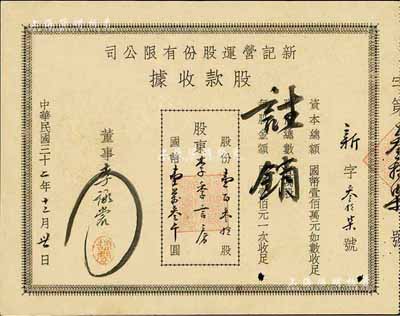 新記營運股份有限公司
股款收據
新字叁拾柒號
資本總額 國幣壹佰萬元如數收足
總數
金額 佰元一次收足
註銷
股份 壹百叁拾股
股東 李季言房
國幣 壹萬叁千圓
董事 李
中華民國三十二年十二月卅一日
字第叁拾柒號